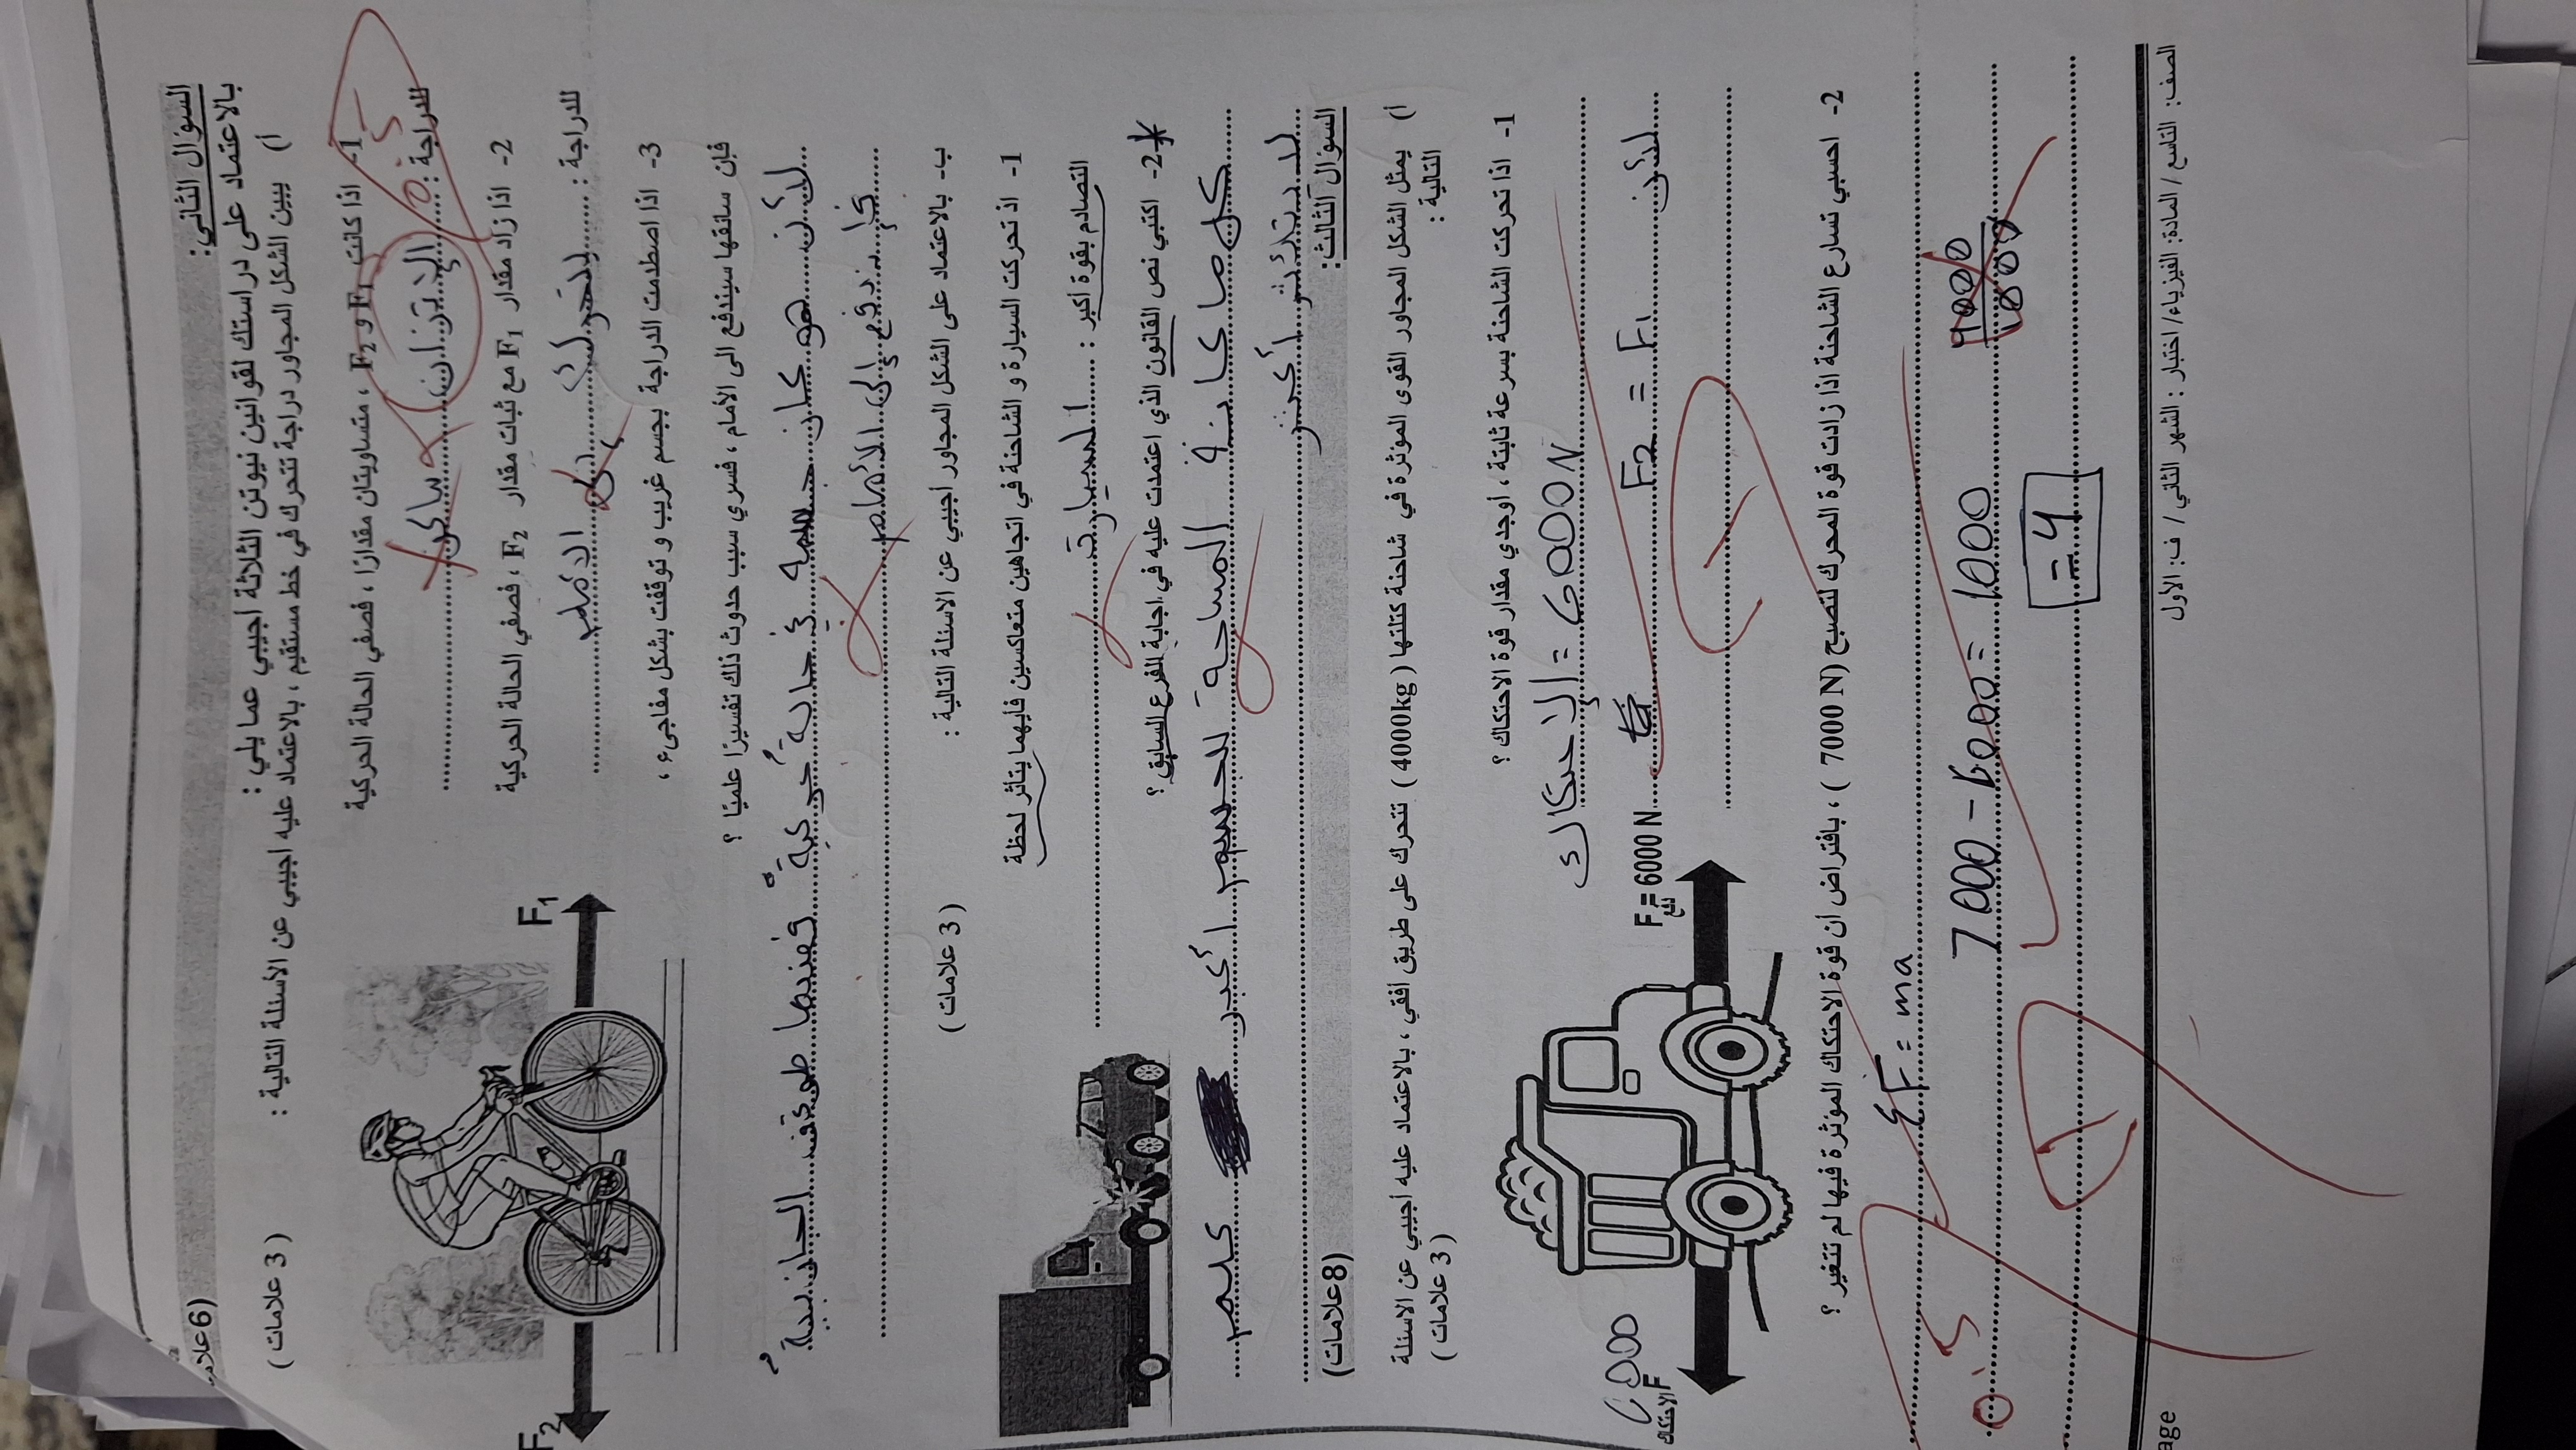 السؤال الثاني: (6علاما
بالاعتماد على دراستك لقوانين نيوتن الثلاثة اجيبي عما يلي :
أ) يبين الشكل المجاور دراجة تتحرك في خط مستقيم ، بالاعتماد عليه اجيبي عن الأسئلة التالية : ( 3 علامات )
1- اذا كانت F1 و F2 ، متساويتان مقدارًا ، فصفي الحالة الحركية
للدراجة : الإتزان ساكن
0.5
2- اذا زاد مقدار F1 مع ثبات مقدار F2 ، فصفي الحالة الحركية
للدراجة : بتحرك إلى الأمام
3- اذا اصطدمت الدراجة بجسم غريب و توقفت بشكل مفاجىء ،
فإن سائقها سيندفع الى الأمام ، فسري سبب حدوث ذلك تفسيرًا علميًا ؟
لأن هو كان جسمه في حالة حركية فعندما طوقف الجاذبية
فاندفع إلى الأمام
F1
F2
ب- بالاعتماد على الشكل المجاور اجيبي عن الاسئلة التالية : ( 3 علامات )
1- اذ تحركت السيارة و الشاحنة في اتجاهين متعاكسين فايهما يتأثر لحظة
التصادم بقوة أكبر : السيارة
2- اكتبي نص القانون الذي اعتمدت عليه في اجابة الفرع السابق ؟
كل ما كانة المساحة لجسم أكبر كلم
لتئثر أكثر
السؤال الثالث: (8علامات)
أ) يمثل الشكل المجاور القوى المؤثرة في شاحنة كتلتها ( 4000kg ) تتحرك على طريق أفقي ، بالاعتماد عليه اجيبي عن الاسئلة
التالية : ( 3 علامات )
1- اذا تحركت الشاحنة بسرعة ثابتة ، أوجدي مقدار قوة الاحتكاك ؟
الإحتكاك = 6000N
لأن F2 = F1
F دفع = 6000 N
6000
F الاحتكاك
2- احسبي تسارع الشاحنة اذا زادت قوة المحرك لتصبح ( 7000 N ) ، بافتراض أن قوة الاحتكاك المؤثرة فيها لم تتغير ؟
ΣF = ma
7000 - 6000 = 1000
4000
1000
= 4
0.5
الصف: التاسع / المادة: الفيزياء/ اختبار : الشهر الثاني / ف: الأول
age